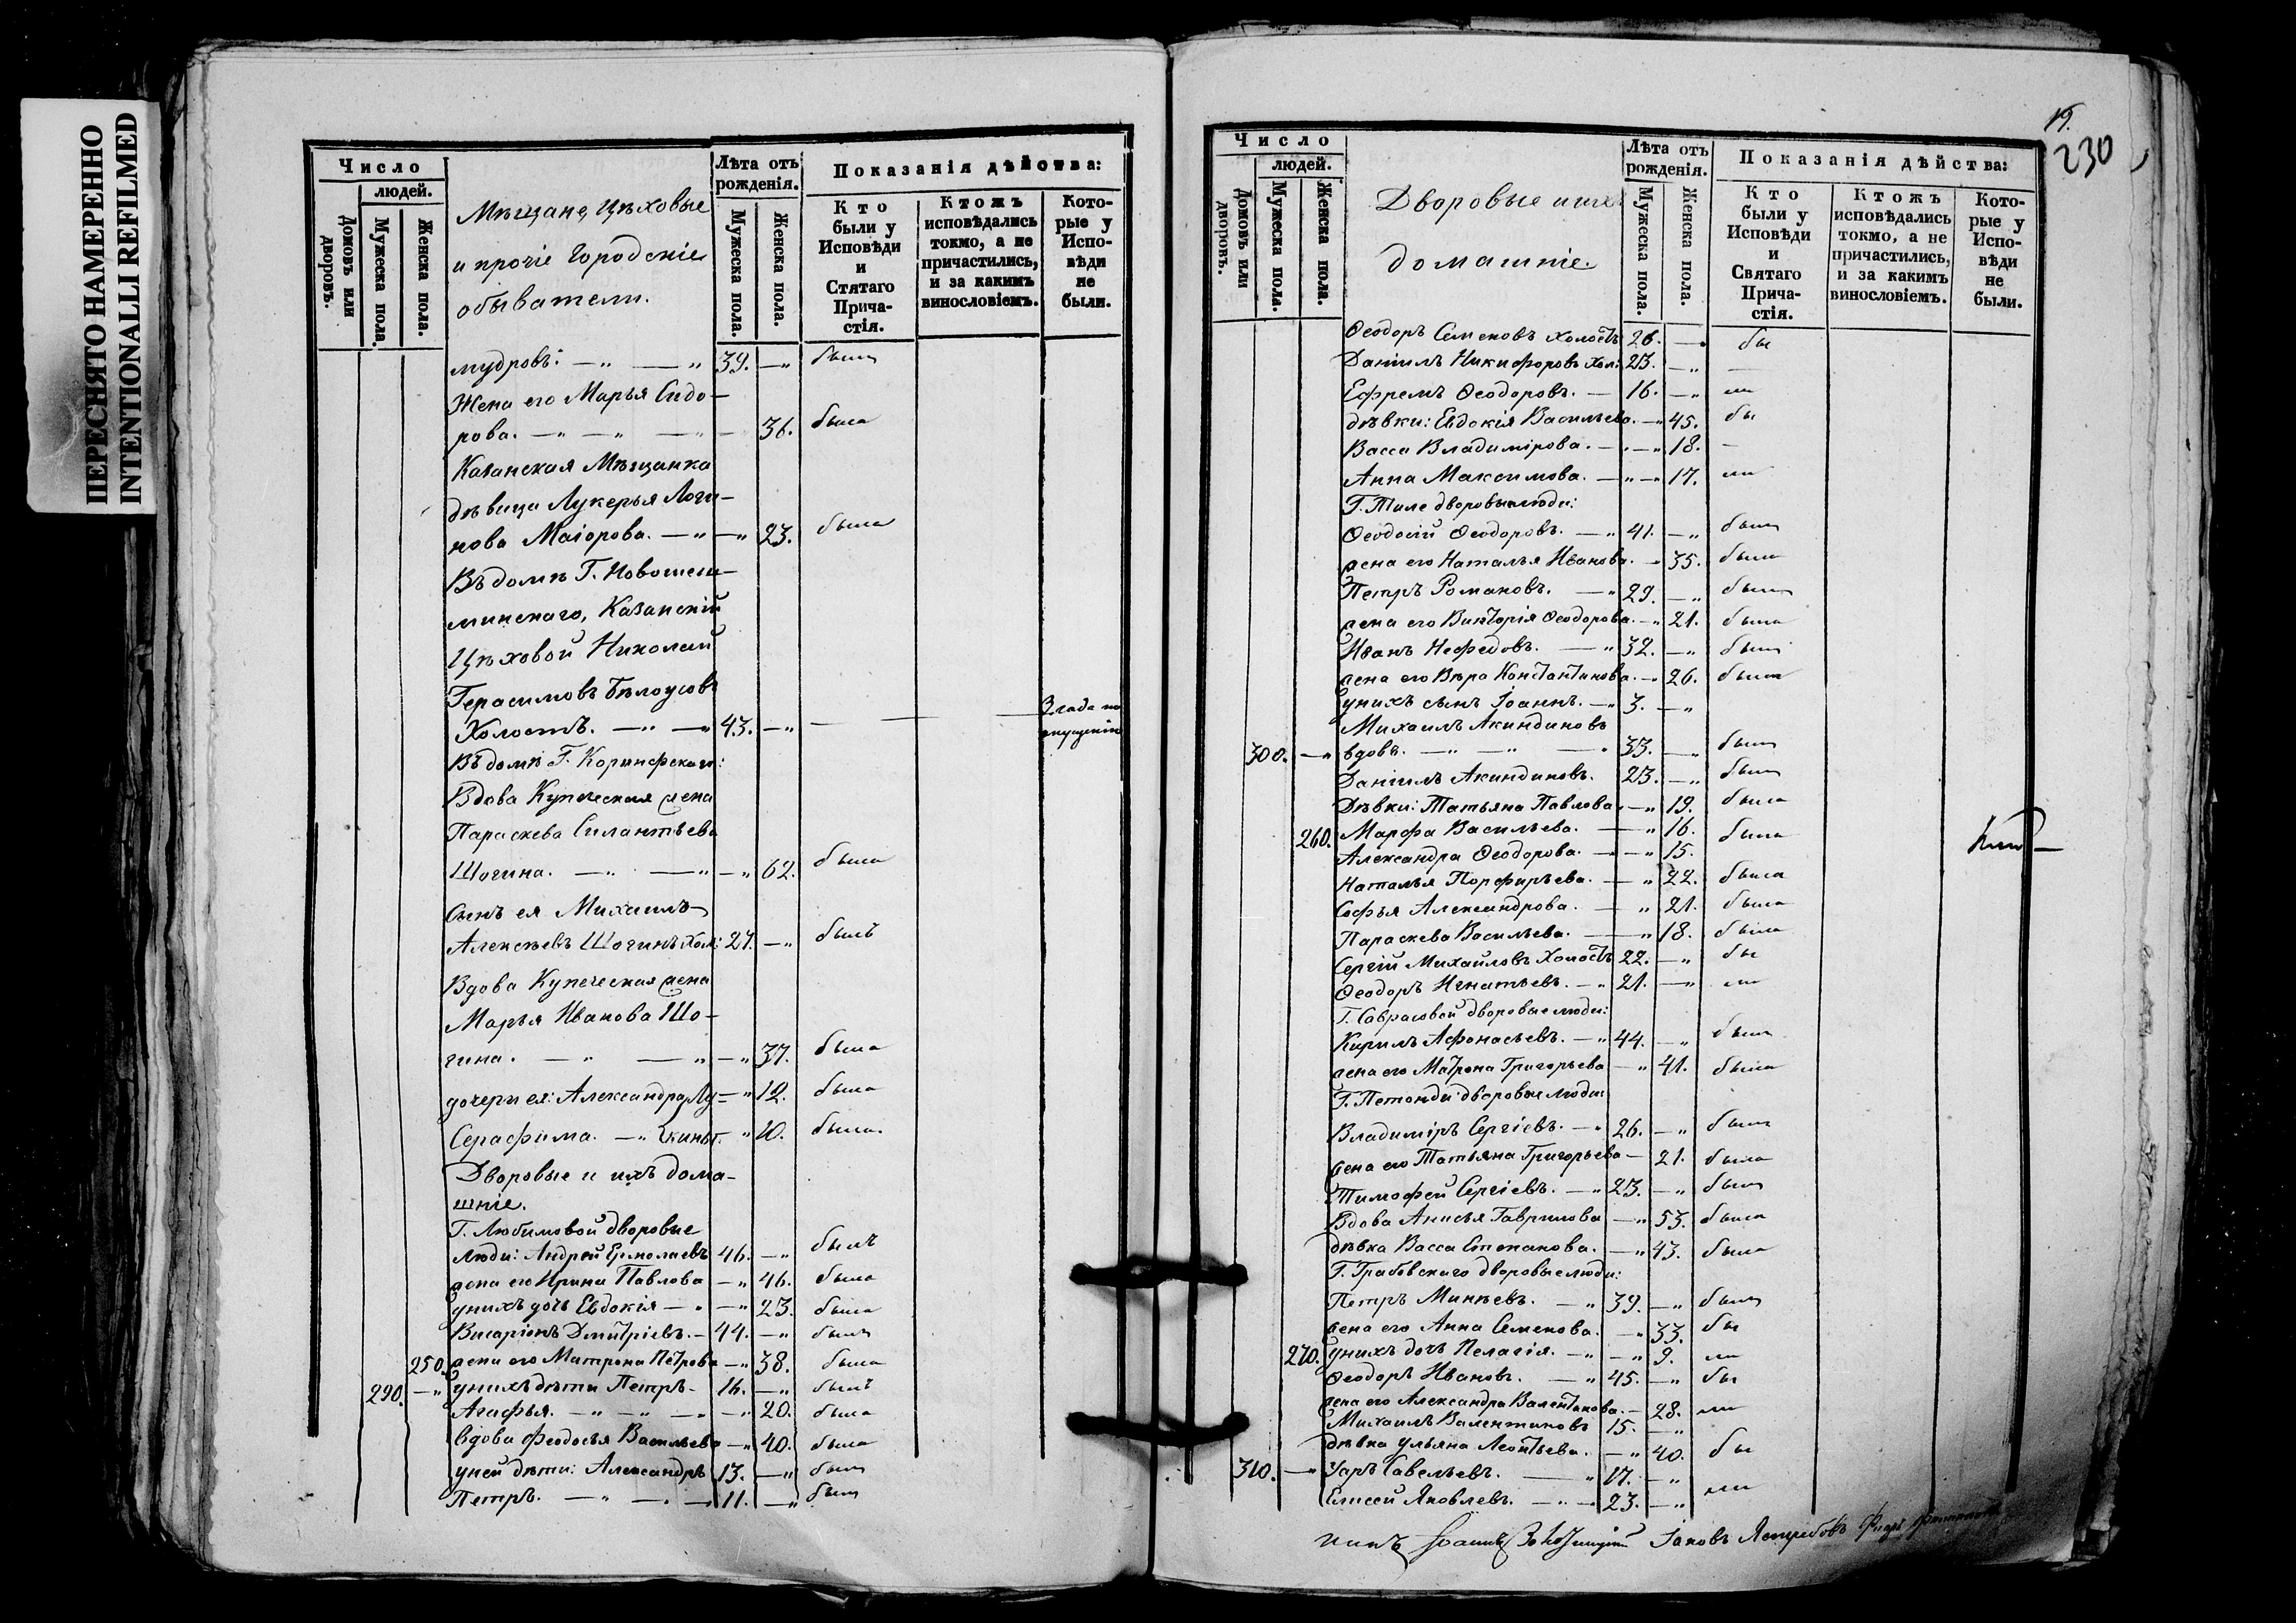 ПЕРЕСНЯТО НАМЕРЕННО
INTENTIONALLI REFILMED
Число
людей.
Домовъ или дворовъ.
Мужеска пола.
Женска пола.
Мѣщане, Цѣховые
и прочіе Городскіе
обыватели.
Лѣта отъ рожденія.
Мужеска пола.
Женска пола.
Показанія дѣйства:
Кто были у Исповѣди и Стятаго Прича-стія.
Ктожъ исповѣдались токмо, а не причастились, и за какимъ винословіемъ.
Кото-рые у Испо-вѣди не были.
мудровъ. — „ — „ 39. — „ былъ
Жена его Марья Сидо-
рова. — „ — „ — „ — 36. была
Казанская Мѣщанка
дѣвица Лукерья Логи-
нова Маіорова. — „ — „ 23. была
Въ домѣ Г. Новошеш-
минскаго, Казанскій
Цѣховой Николай
Герасимовъ Бѣлоусовъ
Холостъ. — „ — „ 43. — „ — — — 3 года по опущенію
Въ домѣ Г. Коринфскаго:
Вдова Купеческая жена
Параскева Силантьева
Шогина. — „ — „ — „ 62. была
Сынъ ея Михаилъ
Алексѣевъ Шогинъ хол: 27. — „ былъ
Вдова Купеческая жена
Марья Иванова Шо-
гина. — „ — „ — „ 37. была
дочери ея: Александра — „ 12. была
Серафима. — „ — „ 10. была.
Дворовые и ихъ дома-
шніе.
Г. Любимовой дворовые
люди: Андрей Ермолаевъ 46. — „ былъ
жена его Ирина Павлова — „ 46. была
у нихъ дочь Евдокія — „ — „ 23. была
Висаріонъ Дмитріевъ. — 44. — „ былъ
250. жена его Матрона Петрова — „ 38. была
290. — „ у нихъ дѣти Петръ — 16. — „ былъ
Агафья. — „ — „ — „ — „ 20. была
вдова Феодосья Васильева — „ 40. была
у ней дѣти: Александръ 13. — „ былъ
Петръ. — „ — „ — 11. — „ былъ
19.
230
Число
людей.
Домовъ или дворовъ.
Мужеска пола.
Женска пола.
Дворовые и ихъ
домашніе.
Лѣта отъ рожденія.
Мужеска пола.
Женска пола.
Показанія дѣйства:
Кто были у Исповѣди и Святаго Прича-стія.
Ктожъ исповѣдались токмо, а не причастились, и за какимъ винословіемъ.
Кото-рые у Испо-вѣди не были.
Ѳеодоръ Семеновъ холостъ 26. — бы
Даніилъ Никифоровъ хол: 23. — „ —
Ефремъ Ѳеодоровъ. — 16. — „ ли
дѣвки: Евдокія Васильева. — „ 45. бы
Васса Владимірова. — „ — „ 18. —
Анна Максимова. — „ — „ 17. ли
Г. Тиле дворовые люди:
Ѳеодосій Ѳеодоровъ. — „ 41. — „ былъ
жена его Наталья Иванова. — 35. была
Петръ Романовъ. — „ 29. — „ былъ
жена его Викторія Ѳеодорова. — „ 21. была
Иванъ Нефедовъ. — „ 32. — „ былъ
жена его Вѣра Константинова. — „ 26. была
у нихъ сынъ Іоаннъ. — „ 3. — „
Михаилъ Акиндиновъ
300. — „ вдовъ. — „ — „ — „ 33. — „ былъ
Даніилъ Акиндиновъ. 23. — „ былъ
Дѣвки: Татьяна Павлова. — „ 19. была
260. Марфа Васильева. — „ 16. была
Александра Ѳеодорова. — „ 15.
Наталья Порфирьева. — „ 22. была
Софья Александрова. — „ 21. была
Параскева Васильева. — „ 18. была
Сергій Михайловъ Холостъ 22. — „ бы
Ѳеодоръ Игнатьевъ. — „ 21. — „ ли
Г. Саврасовой дворовые люди:
Кирилъ Афонасьевъ. — „ 44. — „ былъ
жена его Матрона Григорьева — „ 41. была
Г. Петонди дворовые люди:
Владиміръ Сергіевъ. — „ 26. — „ былъ
жена его Татьяна Григорьева — 21. была
Тимофей Сергіевъ. — „ 23. — „ былъ
Вдова Анисья Гаврилова — „ 53. была
дѣвка Васса Степанова. — „ 43. была
Г. Грабовскаго дворовые люди:
Петръ Минѣевъ. — „ 39. — „ былъ
жена его Анна Семенова. — „ 33. бы
270. у нихъ дочь Пелагія. — „ — „ 9. ли
Ѳеодоръ Ивановъ. — „ 45. — „ бы
жена его Александра Валентинова. — 28. ли
Михаилъ Валентиновъ 15. — „
дѣвка Ульяна Леонтьева. — „ 40. бы
310. — „ Уаръ Савельевъ. — „ 17. — „
Елисей Яковлевъ. — „ — 23. — „ ли
Іоаннъ Іаковъ Ястребовъ